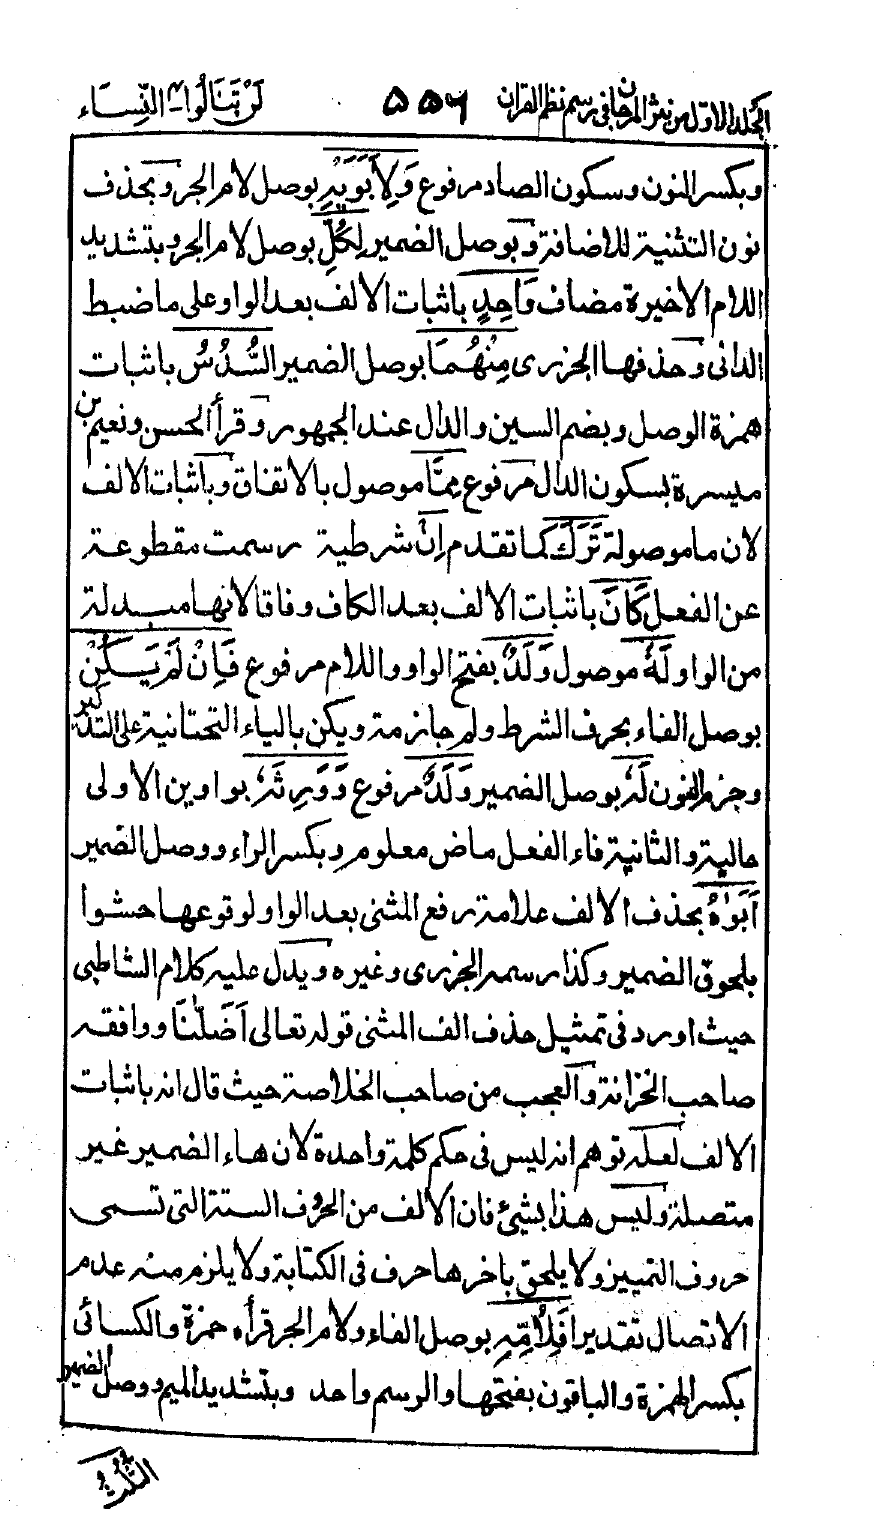 المجلد الاول من نثر المرجان فى رسم نظم القران ۵۵۶ لَنْ تَنَالُوا ٤ النِّسَاء
وبكسر النون وسكون الصاد مرفوع وَلِأَبَوَيْهِ بوصل لام الجر وبحذف
نون التثنية للاضافة وبوصل الضمير لِكُلِّ بوصل لام الجر وبتشديد
اللام الاخيرة مضاف وَاحِدٍ باثبات الالف بعد الواو على ما ضبط
الدانى وحذفها الجزرى مِنْهُمَا بوصل الضمير السُّدُسُ باثبات
همزة الوصل وبضم السين والدال عند الجمهور وقرأ الحسن ونعيم بن
ميسرة بسكون الدال مرفوع مِمَّا موصول بالاتفاق وباثبات الالف
لان ما موصولة تَرَكَ كما تقدم اِنْ شرطية رسمت مقطوعة
عن الفعل كَانَ باثبات الالف بعد الكاف وفاقا لانها مبدلة
من الواو لَهٗ موصول وَلَدٌ بفتح الواو واللام مرفوع فَاِنْ لَمْ يَكُنْ
بوصل الفاء بحرف الشرط ولم جازمة ويكن بالياء التحتانية على التذكير
وجزم النون لَهٗ بوصل الضمير وَلَدٌ مرفوع وَوَرِثَهٗ بواوين الاولى
حالية والثانية فاء الفعل ماض معلوم وبكسر الراء ووصل الضمير
اَبَوٰهُ بحذف الالف علامة رفع المثنى بعد الواو لوقوعها حشوا
بلحوق الضمير وكذا رسمه الجزرى وغيره ويدل عليه كلام الشاطبى
حيث اورد فى تمثيل حذف الف المثنى قوله تعالى اَضَلّٰنَا ووافقه
صاحب الخزانة والعجب من صاحب الخلاصة حيث قال انه باثبات
الالف لعله توهم انه ليس فى حكم كلمة واحدة لان هاء الضمير غير
متصلة وليس هذا بشئ فان الالف من الحروف الستة التى تسمى
حروف التمييز ولا يلحق باخرها حرف فى الكتابة ولا يلزم منه عدم
الاتصال تقديرا فَلِاُمِّهِ بوصل الفاء ولام الجر قرأه حمزة والكسائى
بكسر الهمزة والباقون بفتحها والرسم واحد وبتشديد الميم ووصل الضمير
الثُّلُثُ